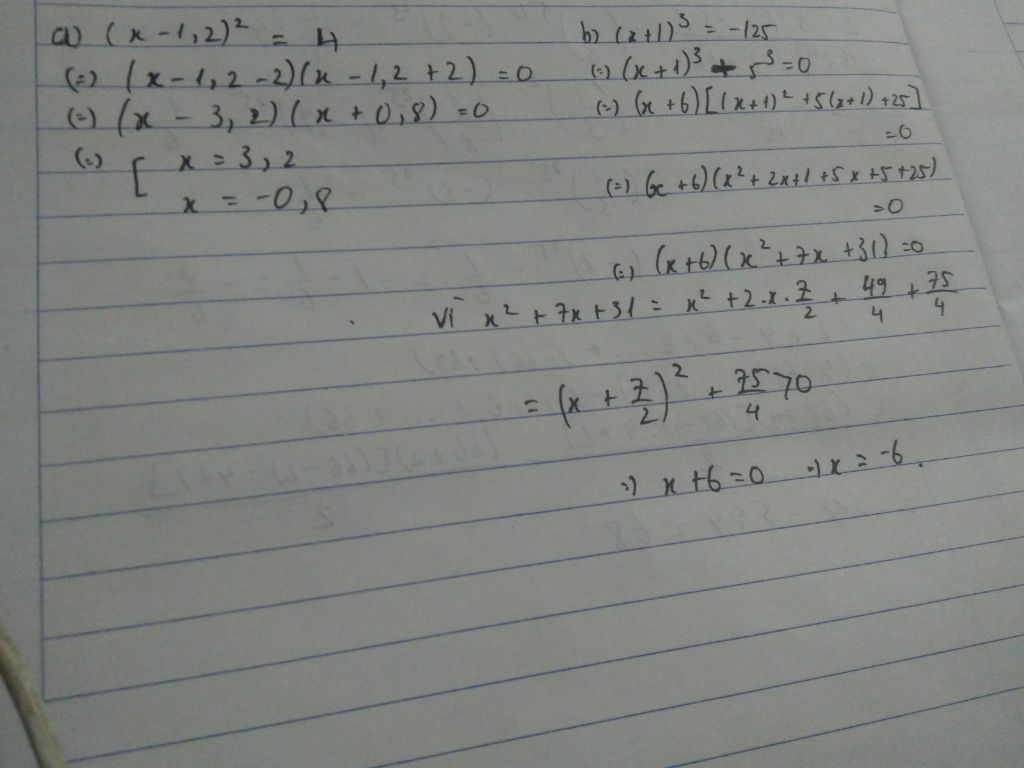 a) (x - 1,2)² = 4
(=) (x - 1,2 - 2)(x - 1,2 + 2) = 0
(=) (x - 3,2)(x + 0,8) = 0
(=) [ x = 3,2
x = -0,8
b) (x+1)³ = -125
(=) (x+1)³ + 5³ = 0
(=) (x+6)[(x+1)² + 5(x+1) + 25]
= 0
(=) (x+6)(x² + 2x+1 + 5x + 5 + 25)
= 0
(=) (x+6)(x² + 7x + 31) = 0
Vì x² + 7x + 31 = x² + 2.x.7/2 + 49/4 + 75/4
= (x + 7/2)² + 75/4 > 0
=) x + 6 = 0 =) x = -6.